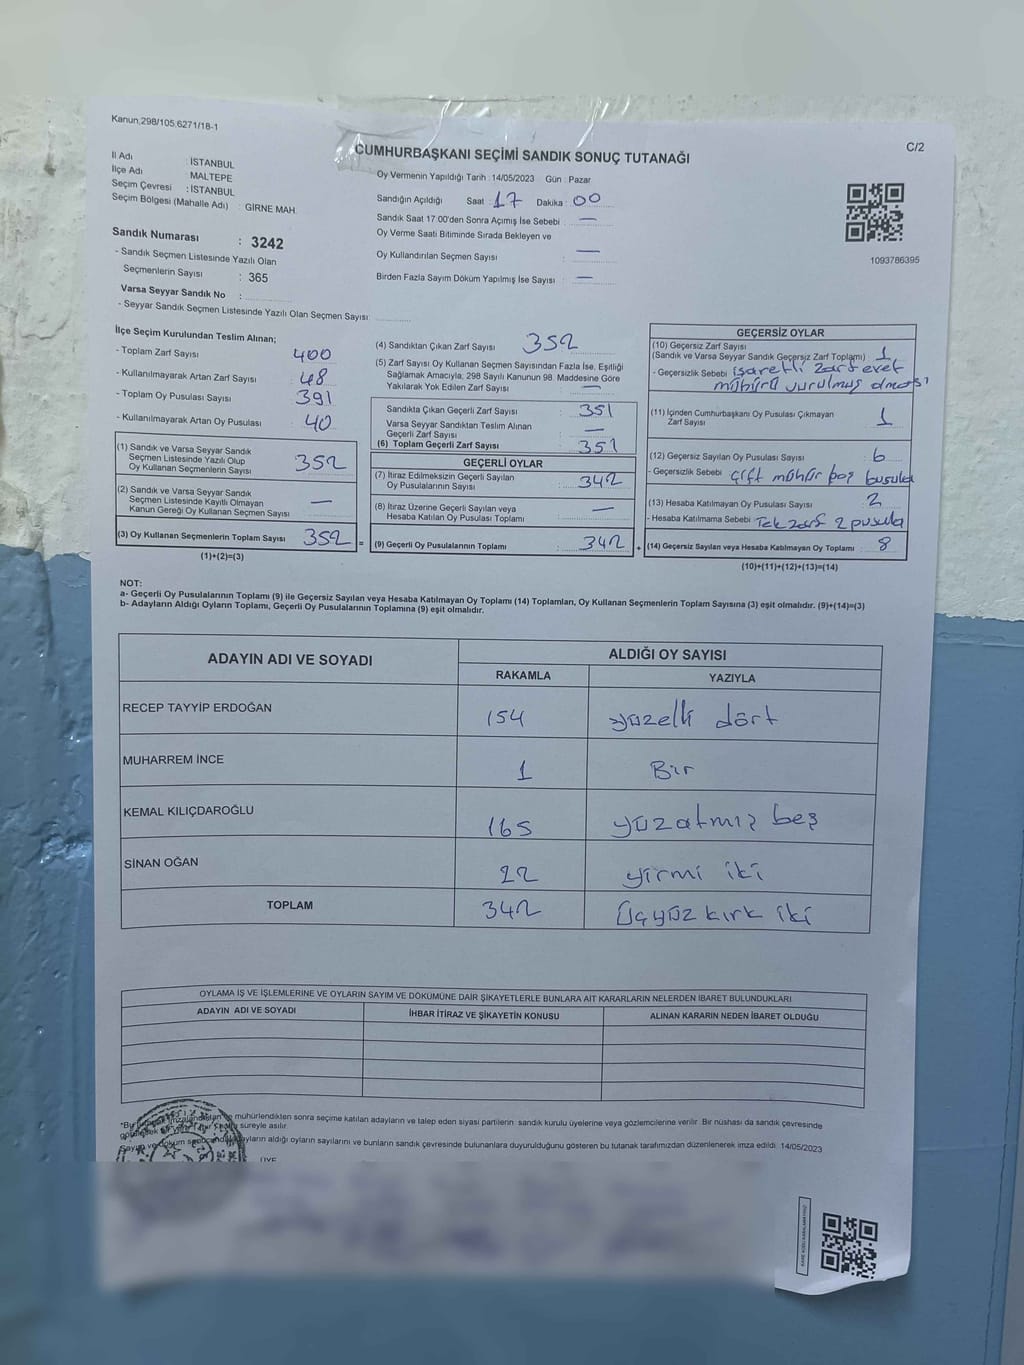 Kanun,298/105,6271/18-1
C/2
CUMHURBAŞKANI SEÇİMİ SANDIK SONUÇ TUTANAĞI
İl Adı : İSTANBUL
İlçe Adı : MALTEPE
Seçim Çevresi : İSTANBUL
Seçim Bölgesi (Mahalle Adı) : GİRNE MAH.
Oy Vermenin Yapıldığı Tarih : 14/05/2023 Gün : Pazar
Sandığın Açıldığı Saat : 17 Dakika : 00
Sandık Saat 17.00'den Sonra Açımış İse Sebebi : —
Oy Verme Saati Bitiminde Sırada Bekleyen ve
Oy Kullandırılan Seçmen Sayısı : —
Birden Fazla Sayım Döküm Yapılmış İse Sayısı : —
1093786395
Sandık Numarası : 3242
- Sandık Seçmen Listesinde Yazılı Olan
Seçmenlerin Sayısı : 365
Varsa Seyyar Sandık No :
- Seyyar Sandık Seçmen Listesinde Yazılı Olan Seçmen Sayısı:
İlçe Seçim Kurulundan Teslim Alınan;
- Toplam Zarf Sayısı : 400
- Kullanılmayarak Artan Zarf Sayısı : 48
- Toplam Oy Pusulası Sayısı : 391
- Kullanılmayarak Artan Oy Pusulası : 40
(1) Sandık ve Varsa Seyyar Sandık
Seçmen Listesinde Yazılı Olup
Oy Kullanan Seçmenlerin Sayısı : 352
(2) Sandık ve Varsa Seyyar Sandık
Seçmen Listesinde Kayıtlı Olmayan
Kanun Gereği Oy Kullanan Seçmen Sayısı : —
(3) Oy Kullanan Seçmenlerin Toplam Sayısı : 352 =
(1)+(2)=(3)
(4) Sandıktan Çıkan Zarf Sayısı : 352
(5) Zarf Sayısı Oy Kullanan Seçmen Sayısından Fazla İse, Eşitliği
Sağlamak Amacıyla, 298 Sayılı Kanunun 98. Maddesine Göre
Yakılarak Yok Edilen Zarf Sayısı : —
Sandıkta Çıkan Geçerli Zarf Sayısı : 351
Varsa Seyyar Sandıktan Teslim Alınan
Geçerli Zarf Sayısı : —
(6) Toplam Geçerli Zarf Sayısı : 351
GEÇERLİ OYLAR
(7) İtiraz Edilmeksizin Geçerli Sayılan
Oy Pusulalarının Sayısı : 342
(8) İtiraz Üzerine Geçerli Sayılan veya
Hesaba Katılan Oy Pusulası Toplamı : —
(9) Geçerli Oy Pusulalarının Toplamı : 342 +
GEÇERSİZ OYLAR
(10) Geçersiz Zarf Sayısı
(Sandık ve Varsa Seyyar Sandık Geçersiz Zarf Toplamı) : 1
- Geçersizlik Sebebi : işaretli zarf evet
mührü vurulmuş olması
(11) İçinden Cumhurbaşkanı Oy Pusulası Çıkmayan
Zarf Sayısı : 1
(12) Geçersiz Sayılan Oy Pusulası Sayısı : 6
- Geçersizlik Sebebi : çift mühür boş busula
(13) Hesaba Katılmayan Oy Pusulası Sayısı : 2
- Hesaba Katılmama Sebebi : Tek zarf 2 pusula
(14) Geçersiz Sayılan veya Hesaba Katılmayan Oy Toplamı : 8
(10)+(11)+(12)+(13)=(14)
NOT:
a- Geçerli Oy Pusulalarının Toplamı (9) ile Geçersiz Sayılan veya Hesaba Katılmayan Oy Toplamı (14) Toplamları, Oy Kullanan Seçmenlerin Toplam Sayısına (3) eşit olmalıdır. (9)+(14)=(3)
b- Adayların Aldığı Oyların Toplamı, Geçerli Oy Pusulalarının Toplamına (9) eşit olmalıdır.
ADAYIN ADI VE SOYADI
ALDIĞI OY SAYISI
RAKAMLA YAZIYLA
RECEP TAYYİP ERDOĞAN 154 yüzelli dört
MUHARREM İNCE 1 Bir
KEMAL KILIÇDAROĞLU 165 yüzatmış beş
SİNAN OĞAN 22 yirmi iki
TOPLAM 342 Üçyüz kırk iki
OYLAMA İŞ VE İŞLEMLERİNE VE OYLARIN SAYIM VE DÖKÜMÜNE DAİR ŞİKAYETLERLE BUNLARA AİT KARARLARIN NELERDEN İBARET BULUNDUKLARI
ADAYIN ADI VE SOYADI İHBAR İTİRAZ VE ŞİKAYETİN KONUSU ALINAN KARARIN NEDEN İBARET OLDUĞU
mühürlendikten sonra seçime katılan adayların ve talep eden siyasi partilerin sandık kurulu üyelerine veya gözlemcilerine verilir. Bir nüshası da sandık çevresinde
süreyle asılır.
adayların aldığı oyların sayılarını ve bunların sandık çevresinde bulunanlara duyurulduğunu gösteren bu tutanak tarafımızdan düzenlenerek imza edildi. 14/05/2023
ÜYE